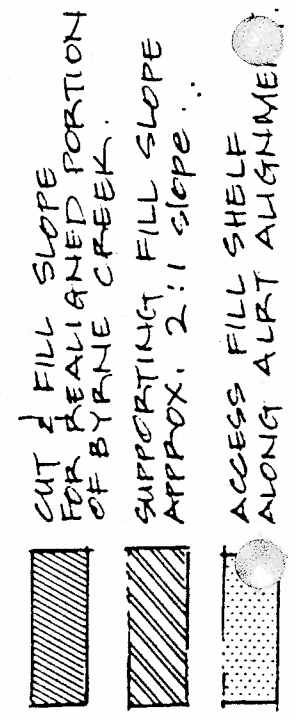 CUT & FILL SLOPE
FOR REALIGNED PORTION
OF BYRNE CREEK.
SUPPORTING FILL SLOPE
APPROX. 2:1 slope..
ACCESS FILL SHELF
ALONG ALRT